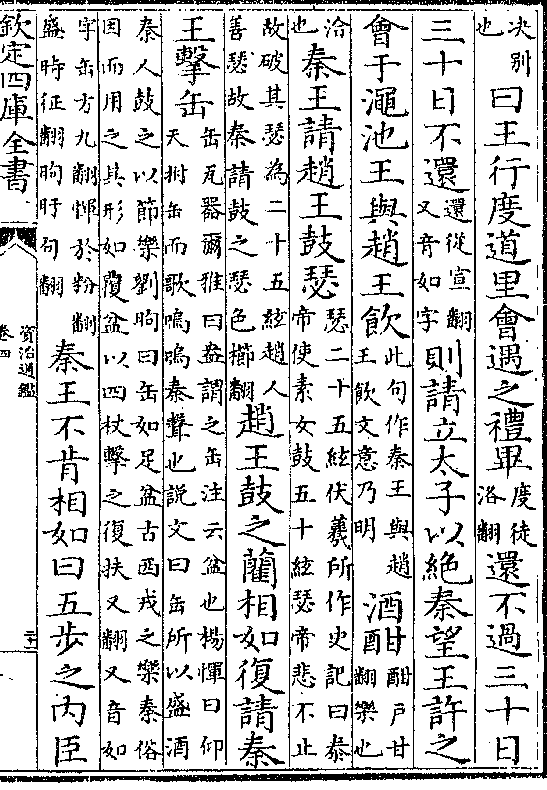 决别
也
曰王行度道里會遇之禮畢
度徒
洛翻
還不過三十日
三十日不還
還從宣翻
又音如字
則請立太子以絶秦望王許之
會于澠池王與趙王飲
此句作秦王與趙
王飲文意乃明
酒酣
酣户甘
翻樂也
洽
也
秦王請趙王鼓瑟
瑟二十五絃伏羲所作史記曰泰
帝使素女鼓五十絃瑟帝悲不止
故破其瑟為二十五絃趙人
善瑟故秦請鼓之瑟色櫛翻
趙王鼓之藺相如復請秦
王擊缶
缶瓦器爾雅曰盎謂之缶注云盆也楊惲曰仰
天拊缶而歌嗚嗚秦聲也説文曰缶所以盛酒
秦人鼓之以節樂劉昫曰缶如足盆古西戎之樂秦俗
因而用之其形如覆盆以四杖擊之復扶又翻又音如
字缶方九翻惲於粉翻
盛時征翻昫吁句翻
秦王不肯相如曰五步之内臣
欽定四庫全書
資治通鑑
卷四